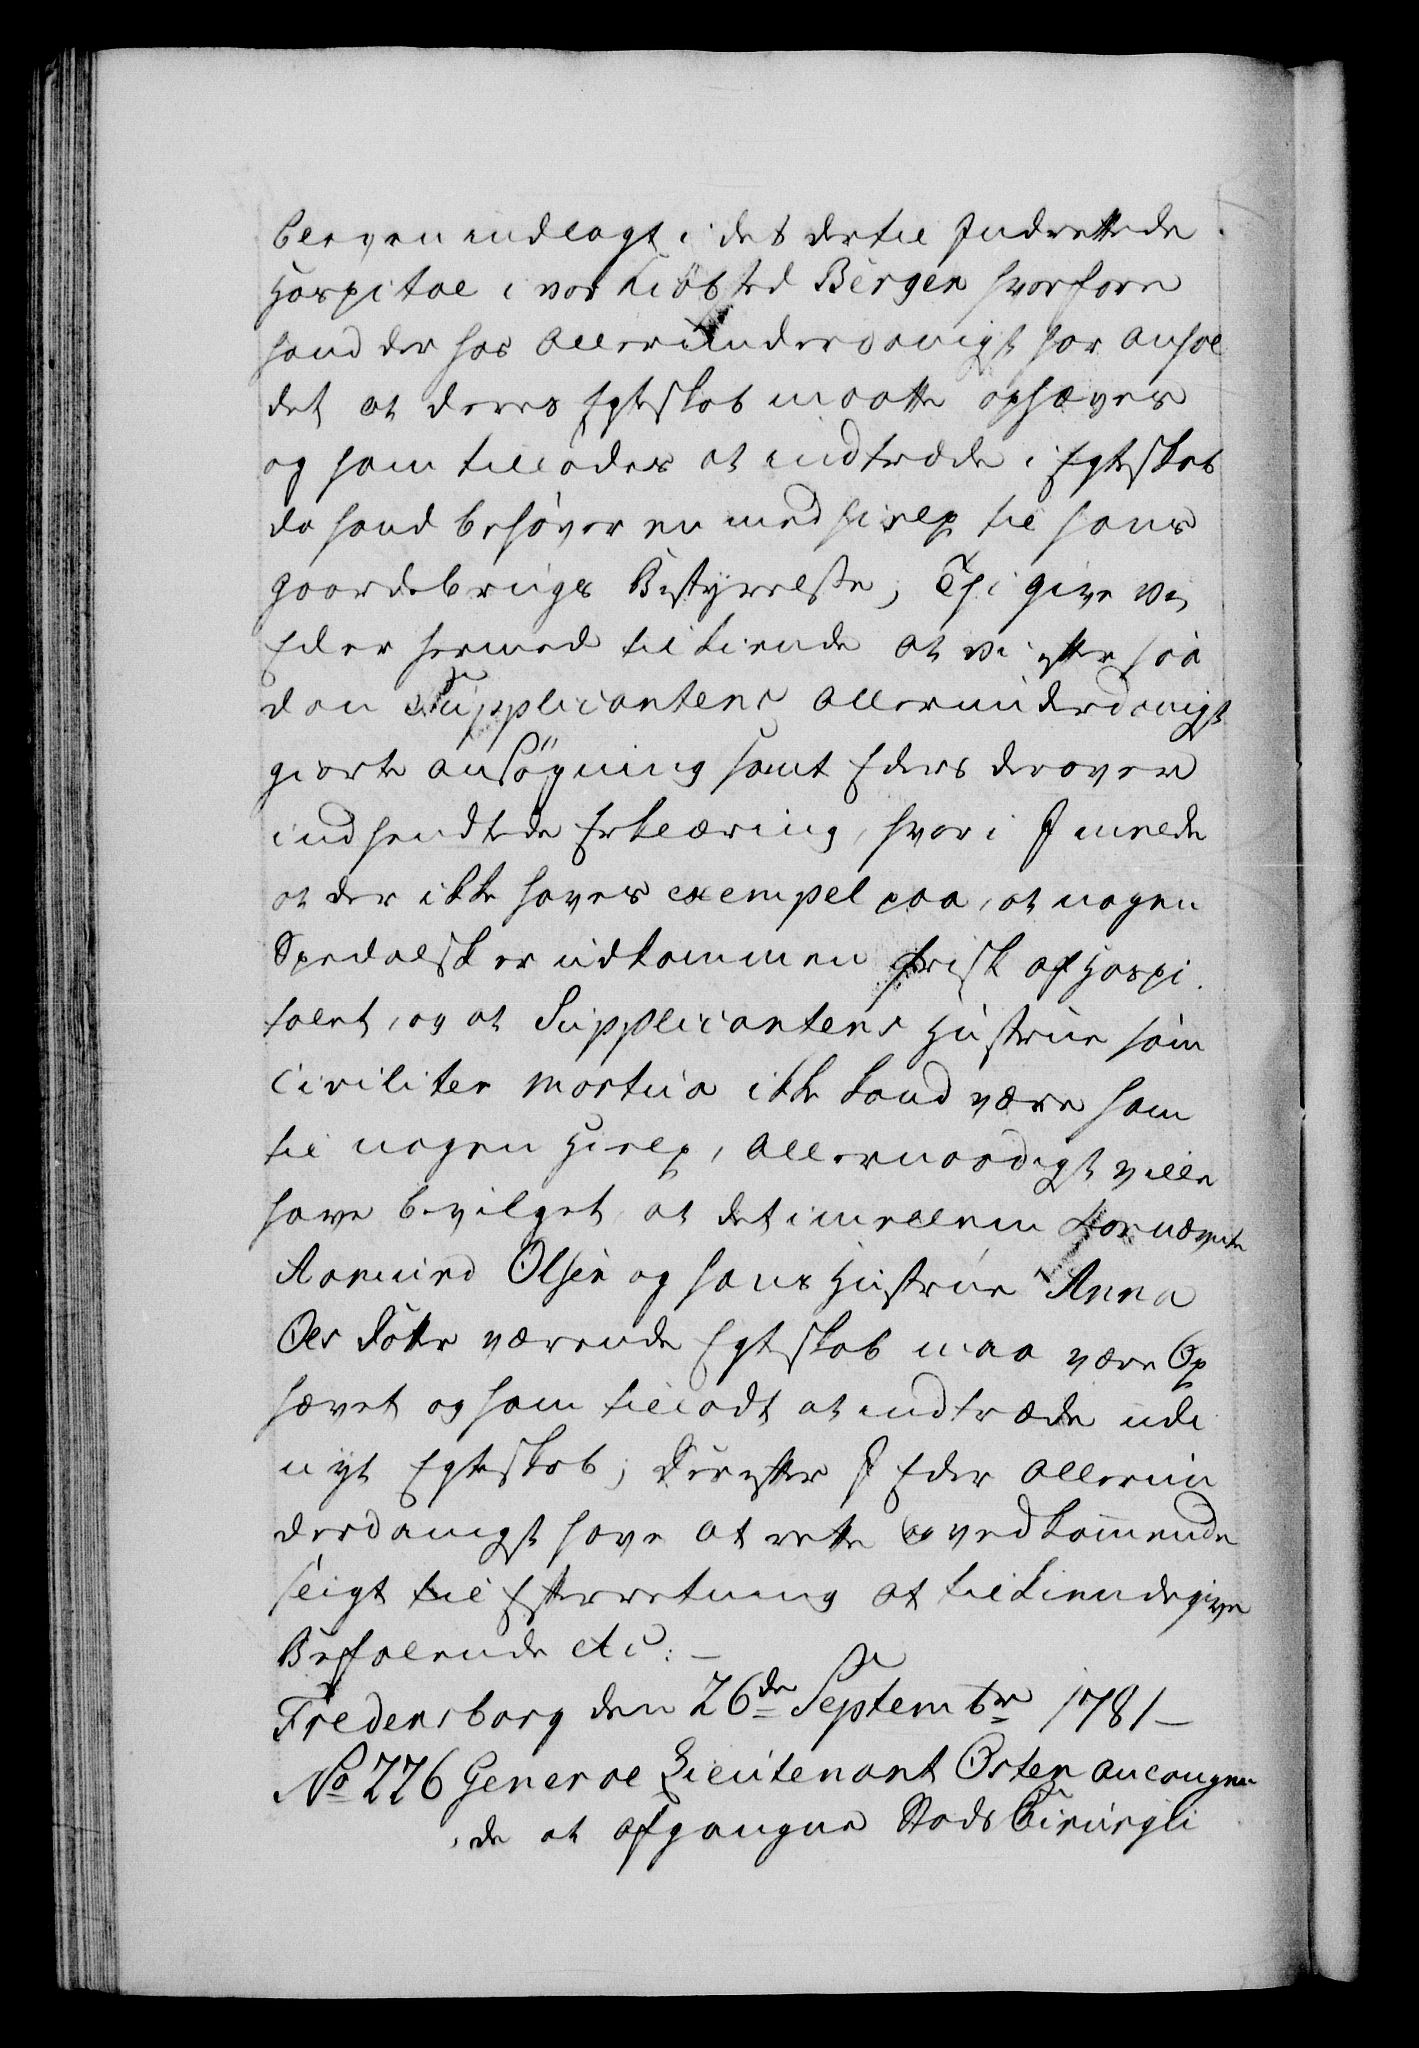 bleven indlagt i det dertil Indrettede
Hospital i vor Kiöbsted Bergen hvorfore
hand der hos Allerunderdanigst har anhol
det at deres Egteskab maatte ophæves
og ham tillades at indtræde i Egteskab
da hand behøver en medhielp til hans
Gaardsbrugs Bestyrelse, Thi give Vi
Eder hermed tilkiende at vi efter saa
dan Supplicantens Allerunderdanigst
giorte ansögning samt Eders derover
indsendtede Erklæring, hvori I melde
at der ikke haves exempel paa, at nogen
Spedalsk er udkommen frisk af Hospi
talet, og at Supplicantens Hustrue som
civiliter mortua ikke kand være ham
til nogen Hielp, Allernaadigst ville
have bevilget at det imellem fornævnte
Aamund Olsen og hans Hustrue Anna
Ols Dötter værende Egteskab maa være Op
hævet og ham tilladt at indtræde udi
nyt Egteskab; Derefter I Eder Allerun
derdanigst have at rette og vedkommende
sligt til Efterretning at tilkiendegive
Befalende etc: —
Fredensborg den 26de Septembr 1781 —
No 226 General Lieutenant Osten anlangen
de at afgangne Stads Chirurgi